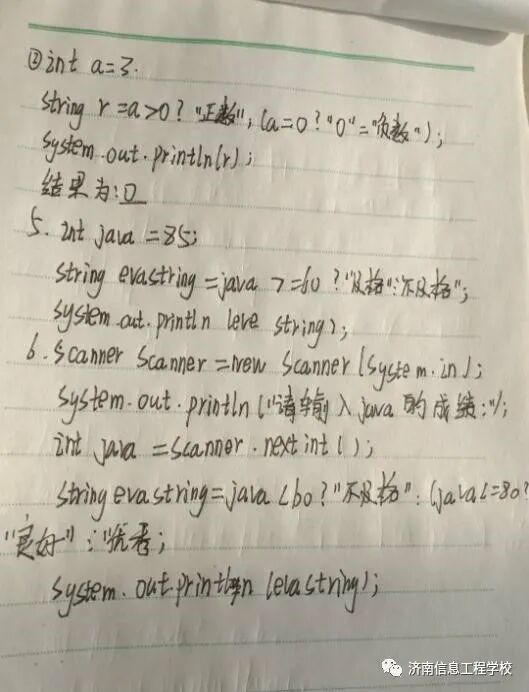 ②int a=3.
string r=a>0?"正数";(a=0?"0"="负数");
system.out.println(r);
结果为:0
5. int java=85;
string evastring=java>=60?"及格":"不及格";
system.out.println leve string);
6. Scanner Scanner=new Scanner(System.in);
system.out.println("请输入java的成绩:");
int java=Scanner.next int();
string evastring=java<60?"不及格":(java<=80?
"良好":"优秀;
system.out.println(evastring);
济南信息工程学校